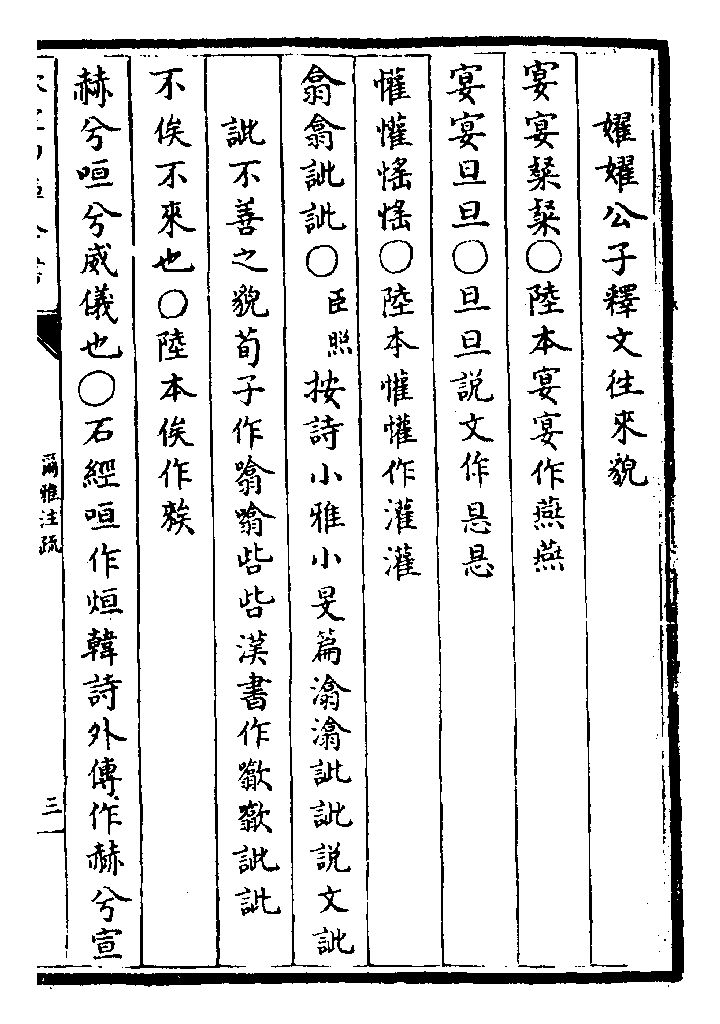 嬥嬥公子釋文往來貌
宴宴粲粲○陸本宴宴作燕燕
宴宴旦旦○旦旦説文作悬悬
懽懽愮愮○陸本懽懽作灌灌
翕翕訿訿○臣照按詩小雅小旻篇潝潝訿訿説文訿
訿不善之貌荀子作噏噏呰呰漢書作歙歙訿訿
不俟不來也○陸本俟作𥏳
赫兮咺兮威儀也○石經咺作烜韓詩外傳作赫兮宣
爾雅注疏
三